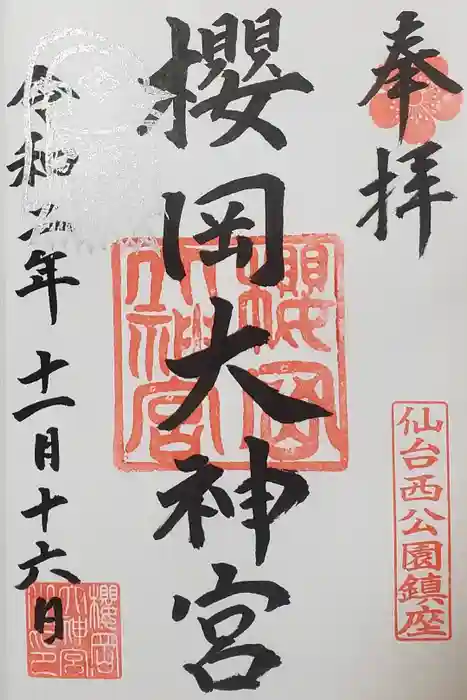 奉拝
仙台西公園鎮座
櫻岡大神宮
櫻岡大神宮
令和五年十一月十六日